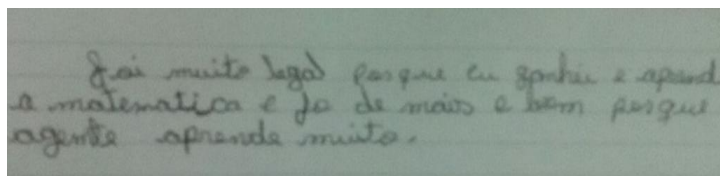 Foi muito legal porque eu ganhei e aprend
a matematica e jo de mais e bom porque
agente aprende muito.